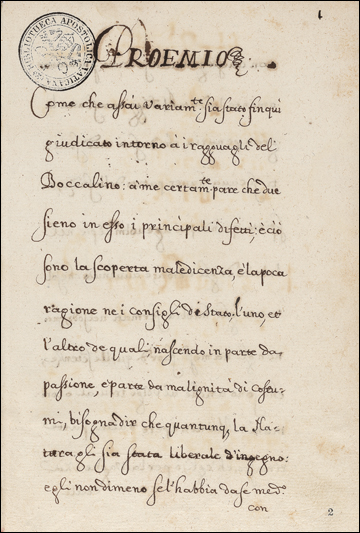 1
BIBLIOTHECA APOSTOLICA VATICANA
PROEMIO
Come che assai variam.te sia stato finqui
giudicato intorno à i ragguagli del
Boccalino: à me certam.te pare che due
sieno in esso i principali difetti; e ciò
sono la scoperta maledicenza, e la poca
ragione ne i consigli di Stato. l'uno, et
l'altro de quali, nascendo in parte da
passione, e parte da malignità di costu-
mi, bisogna dir che quantunq, la Na-
tura gli sia stata liberale d'ingegno:
egli nondimeno se l'habbia da se med.o
con
2